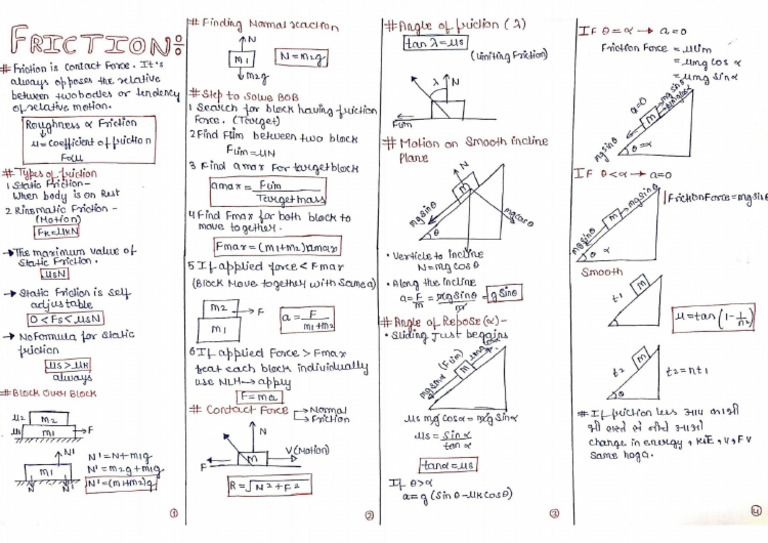 FRICTION:
# Friction is contact Force. It's
always opposes the relative
between two bodies or tendency
of relative motion.
Roughness ∝ Friction
μ = coefficient of friction
F∝μ
# Types of friction
1 Static Friction-
When body is on Rest
2 Kinematic Friction-
(Motion)
FK=μKN
→ The maximum value of
static Friction.
μsN
→ Static Friction is self
adjustable
0 < Fs < μsN
→ No formula for static
friction
μs > μK
always
# Block Over Block
μ2
m2
μ1
m1
→ F
N'
m1
N
N
N' = N+m1g
N' = m2g+m1g
N' = (m1+m2)g
①
# Finding Normal reaction
N
m1
m2g
N = m2g
# Step to Solve BOB
1 Search for block having friction
Force. (Target)
2 Find Flim between two block
Flim = μN
3 Find amax For target block
amax = Flim
Target mass
4 Find Fmax for both block to
move together.
Fmax = (m1+m2)amax
5 If applied force < Fmax
(Block Move together with Same a)
m2
m1
→ F
a = F
m1+m2
6 If applied Force > Fmax
treat each block individually
use NLM → apply
F = ma
# Contact Force → Normal
→ Friction
N
V(Motion)
F
m
R = √N²+F²
②
# Angle of friction (λ)
tan λ = μs
(limiting Friction)
λ
N
Flim
# Motion on Smooth incline
Plane
N
m
mg sinθ
mg cosθ
θ
• Verticle to incline
N = mg cosθ
• Along the incline
a = F/m = mg sinθ/m = g sinθ
# Angle of Repose (α) -
• Sliding just begains
(Flim)
mg sinα
α
μs mg cosα = mg sinα
μs = sinα
tanα
tanα = μs
If θ>α
a = g (sinθ - μK cosθ)
③
If θ=α → a=0
Friction Force = μlim
= μmg cos α
= μmg sinα
a=0
m
mg sinθ
θ=α
If θ<α → a=0
Friction Force = mg sinθ
mg sinθ
m
mg sinθ
θ
α
Smooth
t1
m
μ = tan (1 - 1/n²)
t2
m
θ
t2 = nt1
# If friction less
change in energy
same hoga.
④